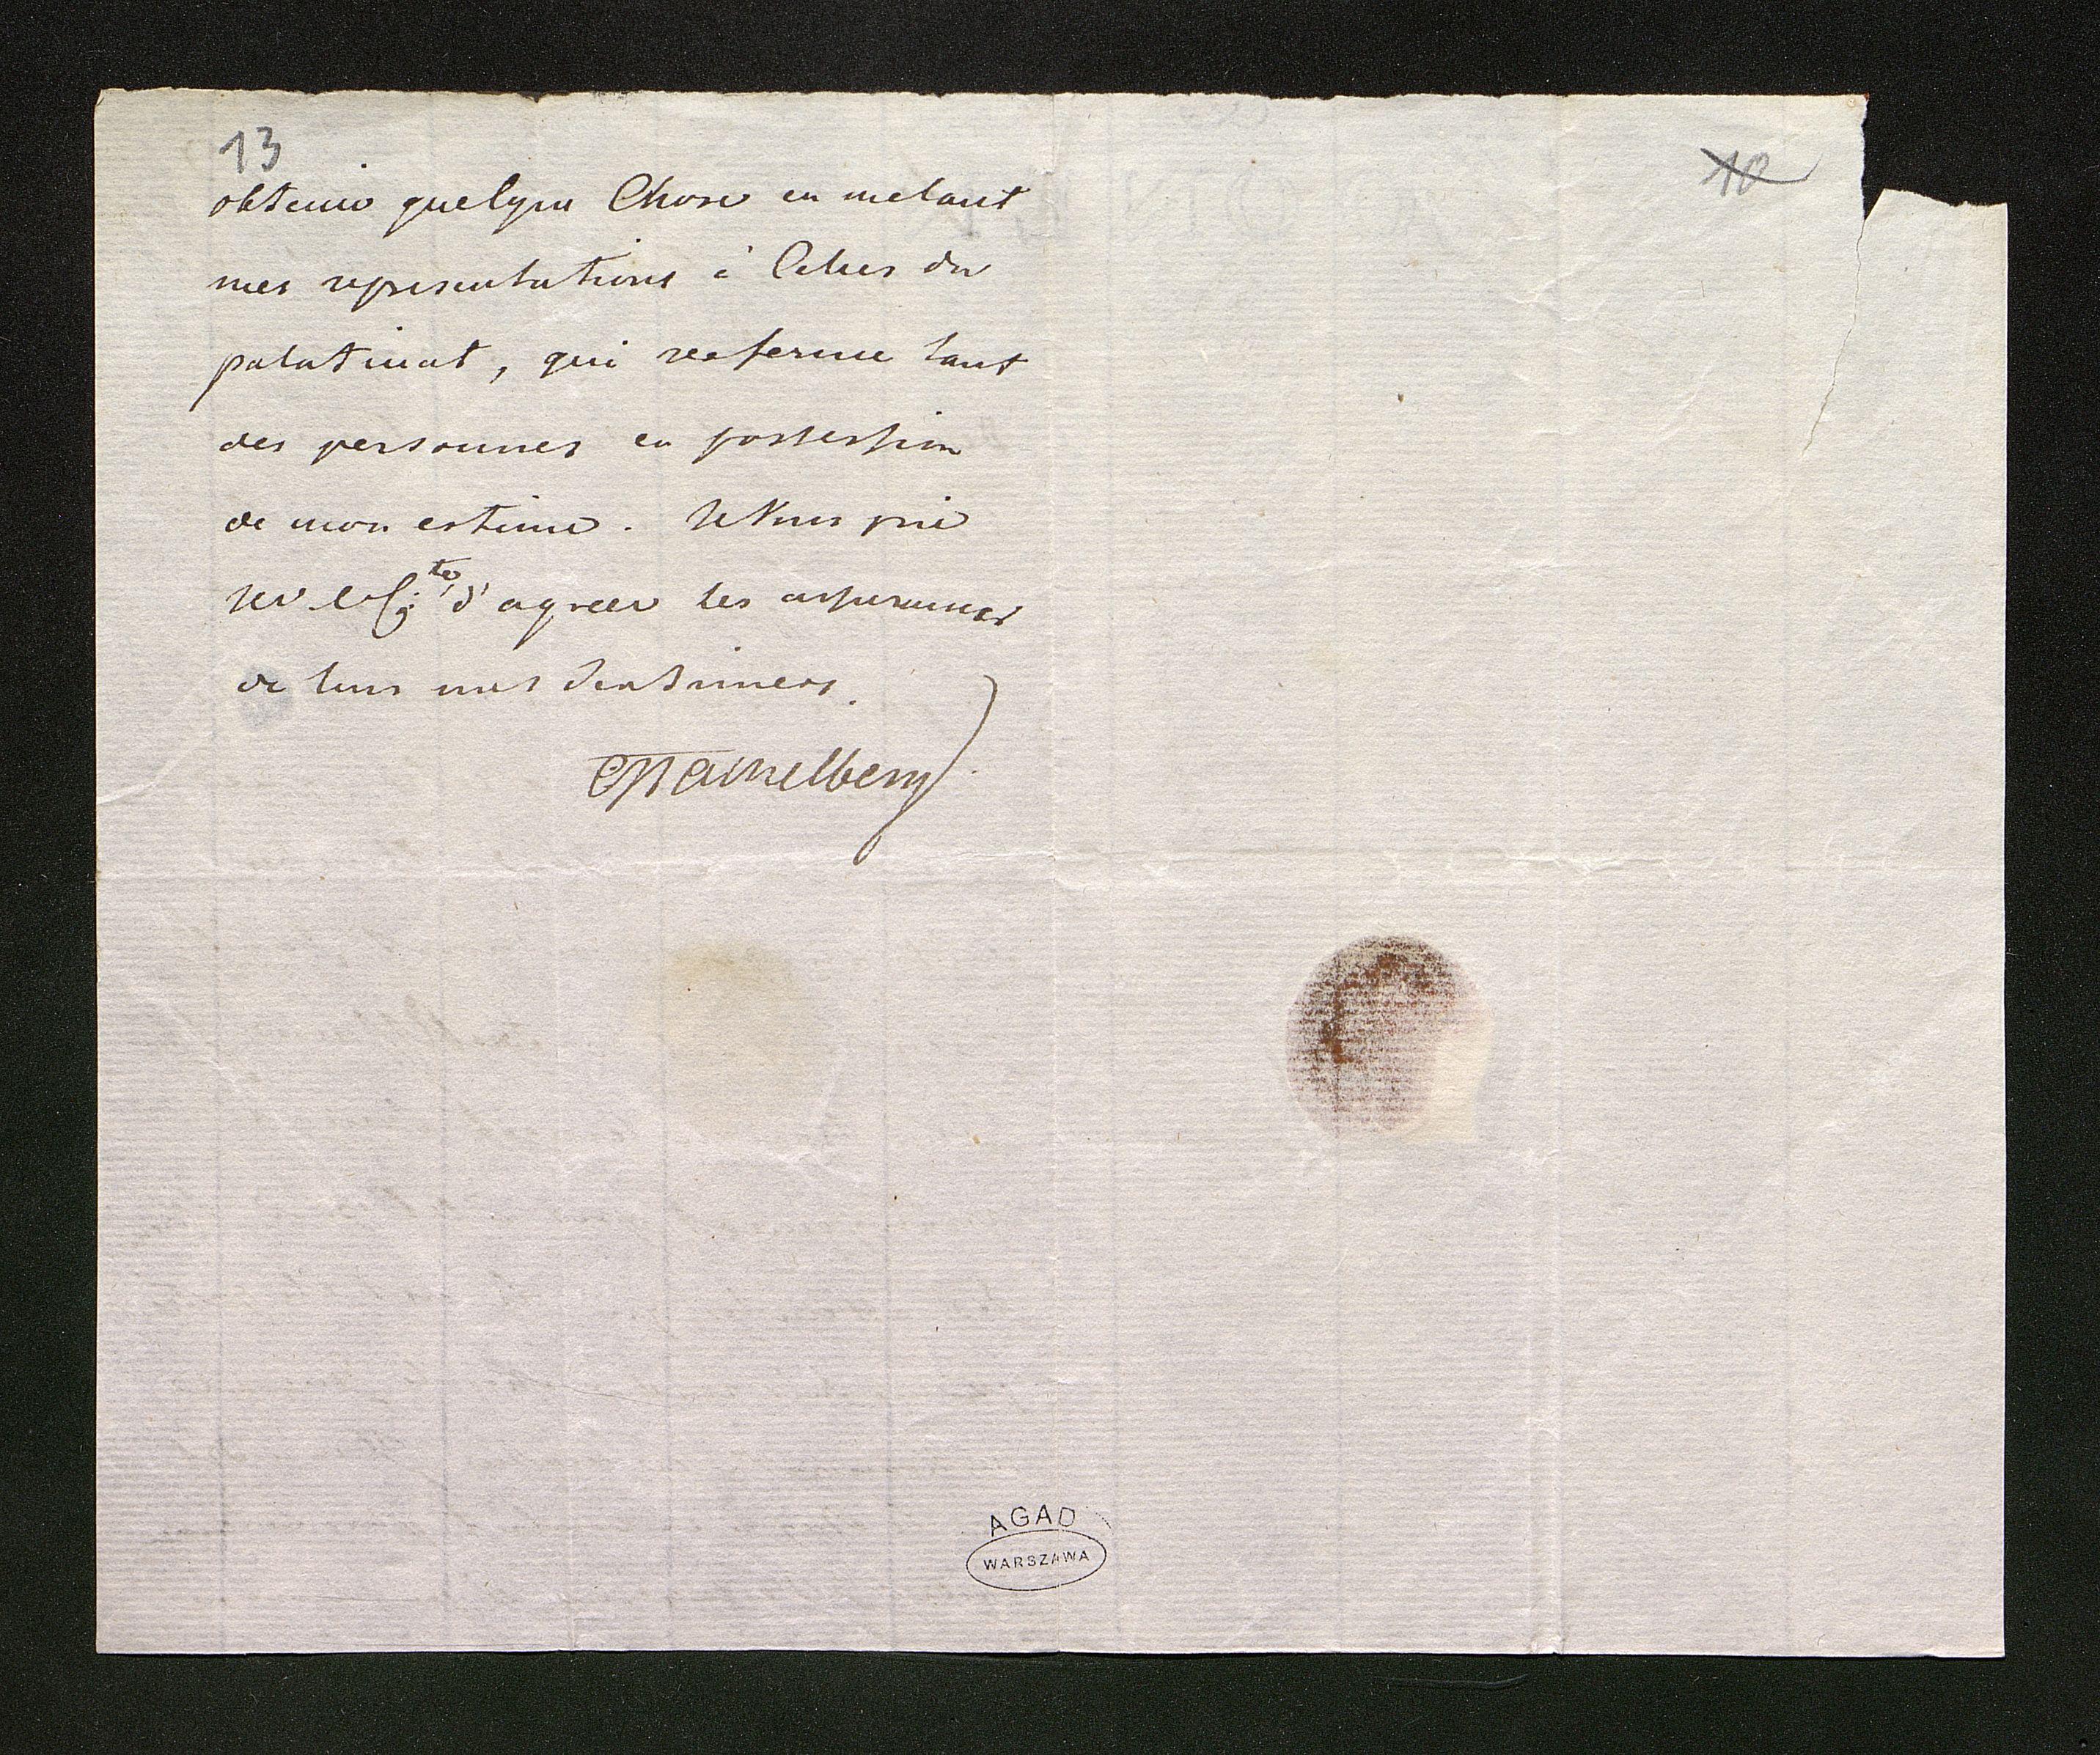 13
10
obtenir quelque Chose en melant
mes representations à Celles du
palatinat, qui renferme tant
des personnes en possession
de mon estime. Je Vous prie
d'agreer les assurances
de tous mes sentimens.
CStackelberg
AGAD
WARSZAWA